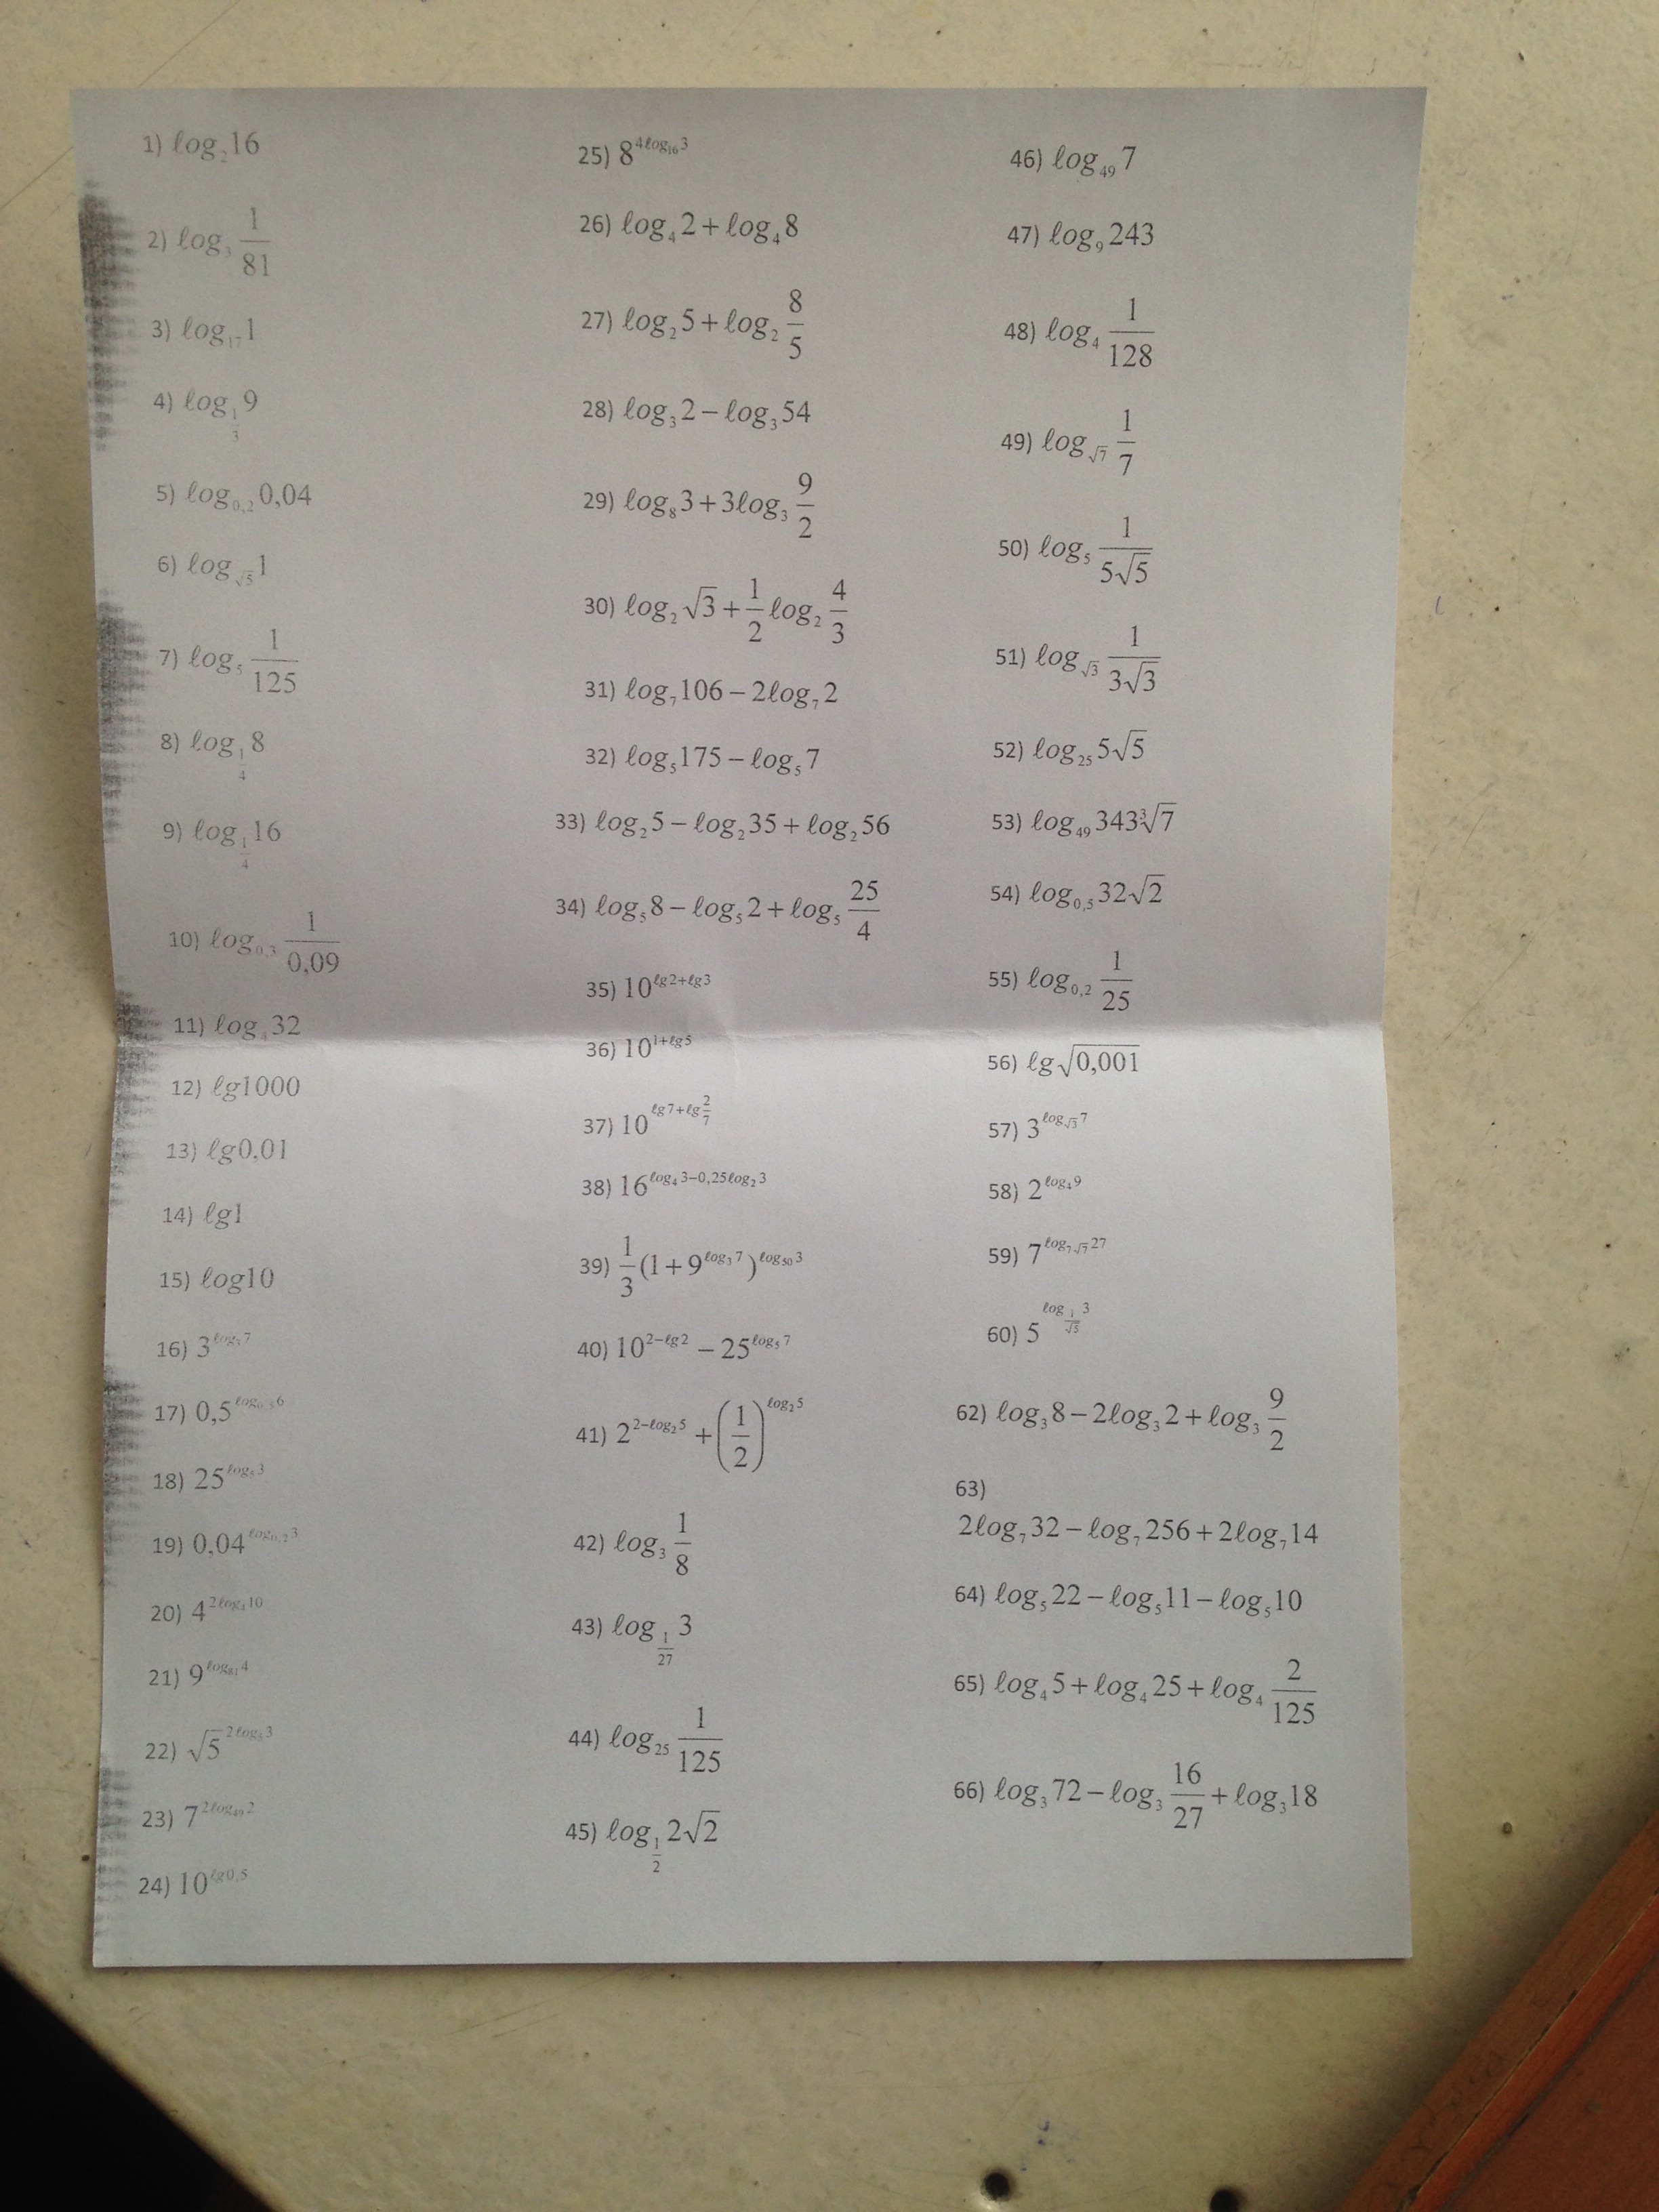 1) ℓog₂16
2) ℓog₃ 1/81
3) ℓog₁₇1
4) ℓog_(1/3) 9
5) ℓog_(0,2) 0,04
6) ℓog_(√5) 1
7) ℓog₅ 1/125
8) ℓog_(1/4) 8
9) ℓog_(1/4) 16
10) ℓog_(0,3) 1/0,09
11) ℓog₄32
12) ℓg1000
13) ℓg0,01
14) ℓg1
15) ℓog10
16) 3^(ℓog₃7)
17) 0,5^(ℓog_(0,5) 6)
18) 25^(ℓog₅3)
19) 0,04^(ℓog_(0,2) 3)
20) 4^(2ℓog₄10)
21) 9^(ℓog₈₁4)
22) √5^(2ℓog₅3)
23) 7^(2ℓog₄₉2)
24) 10^(ℓg0,5)
25) 8^(4ℓog₁₆3)
26) ℓog₄2+ℓog₄8
27) ℓog₂5+ℓog₂ 8/5
28) ℓog₃2−ℓog₃54
29) ℓog₈3+3ℓog₃ 9/2
30) ℓog₂√3+1/2 ℓog₂ 4/3
31) ℓog₇106−2ℓog₇2
32) ℓog₅175−ℓog₅7
33) ℓog₂5−ℓog₂35+ℓog₂56
34) ℓog₅8−ℓog₅2+ℓog₅ 25/4
35) 10^(ℓg2+ℓg3)
36) 10^(1+ℓg5)
37) 10^(ℓg7+ℓg 2/7)
38) 16^(ℓog₄3−0,25ℓog₂3)
39) 1/3 (1+9^(ℓog₃7))^(ℓog₅₀3)
40) 10^(2−ℓg2) − 25^(ℓog₅7)
41) 2^(2−ℓog₂5) + (1/2)^(ℓog₂5)
42) ℓog₃ 1/8
43) ℓog_(1/27) 3
44) ℓog₂₅ 1/125
45) ℓog_(1/2) 2√2
46) ℓog₄₉7
47) ℓog₉243
48) ℓog₄ 1/128
49) ℓog_(√7) 1/7
50) ℓog₅ 1/(5√5)
51) ℓog_(√3) 1/(3√3)
52) ℓog₂₅5√5
53) ℓog₄₉343∛7
54) ℓog_(0,5) 32√2
55) ℓog_(0,2) 1/25
56) ℓg√(0,001)
57) 3^(ℓog_(√3) 7)
58) 2^(ℓog₄9)
59) 7^(ℓog_(7√7) 27)
60) 5^(ℓog_(1/√5) 3)
62) ℓog₃8−2ℓog₃2+ℓog₃ 9/2
63)
2ℓog₇32−ℓog₇256+2ℓog₇14
64) ℓog₅22−ℓog₅11−ℓog₅10
65) ℓog₄5+ℓog₄25+ℓog₄ 2/125
66) ℓog₃72−ℓog₃ 16/27 +ℓog₃18